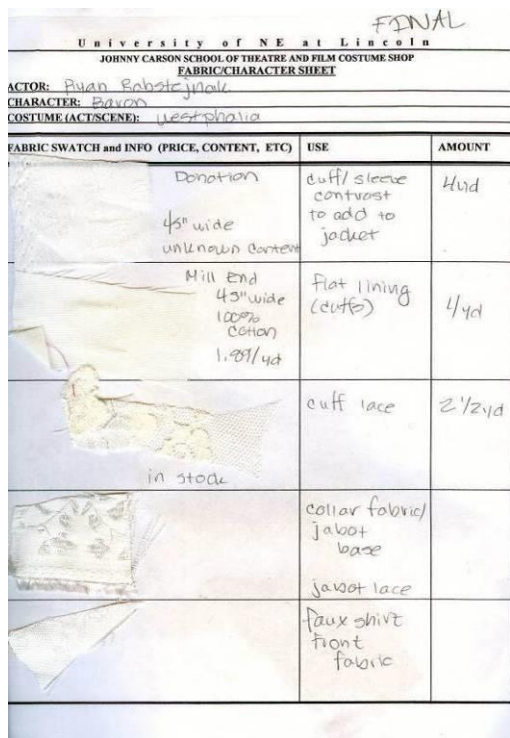 FINAL
University of NE at Lincoln
JOHNNY CARSON SCHOOL OF THEATRE AND FILM COSTUME SHOP
FABRIC/CHARACTER SHEET
ACTOR: Ryan
CHARACTER: Baron
COSTUME (ACT/SCENE): Westphalia
FABRIC SWATCH and INFO (PRICE, CONTENT, ETC) USE AMOUNT
Donation
45" wide
unknown content
cuff/sleeve
contrast
to add to
jacket
Mill End
45" wide
100%
cotton
1.89/yd
flat lining
(cuffs)
in stock
cuff lace
2 1/2 yd
collar fabric/
jabot
base
jabot lace
faux shirt
front
fabric